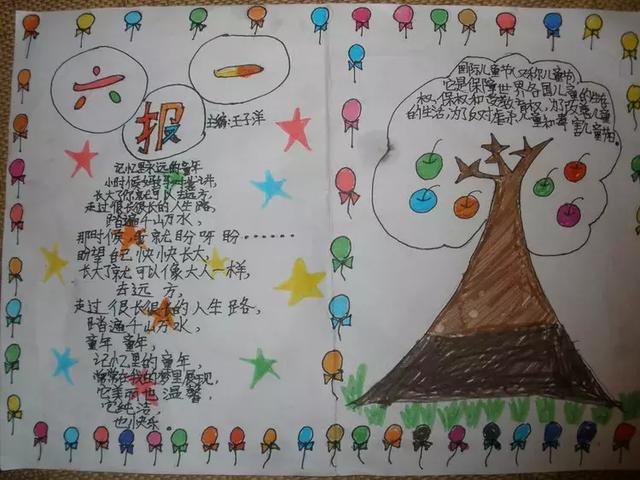 六一
报
主编:王子洋
记忆里永远的童年
小时候
长大你就可
走过很长很长的人生路,
踏遍千山万水,
那时候,我就盼呀盼……
盼望自己快快长大,
长大了就可以像大人一样,
去远方,
走过很长很长的人生路,
踏遍千山万水,
童年童年,
记忆里的童年,
常常在我的梦里展现,
它美丽也温馨
它纯洁
也快乐。
国际儿童节(又称儿童节)
它是保障世界各国儿童的生存
权、保健权和受教育权,为了改善儿童
的生活,为了反对虐杀儿童和毒害儿童的。